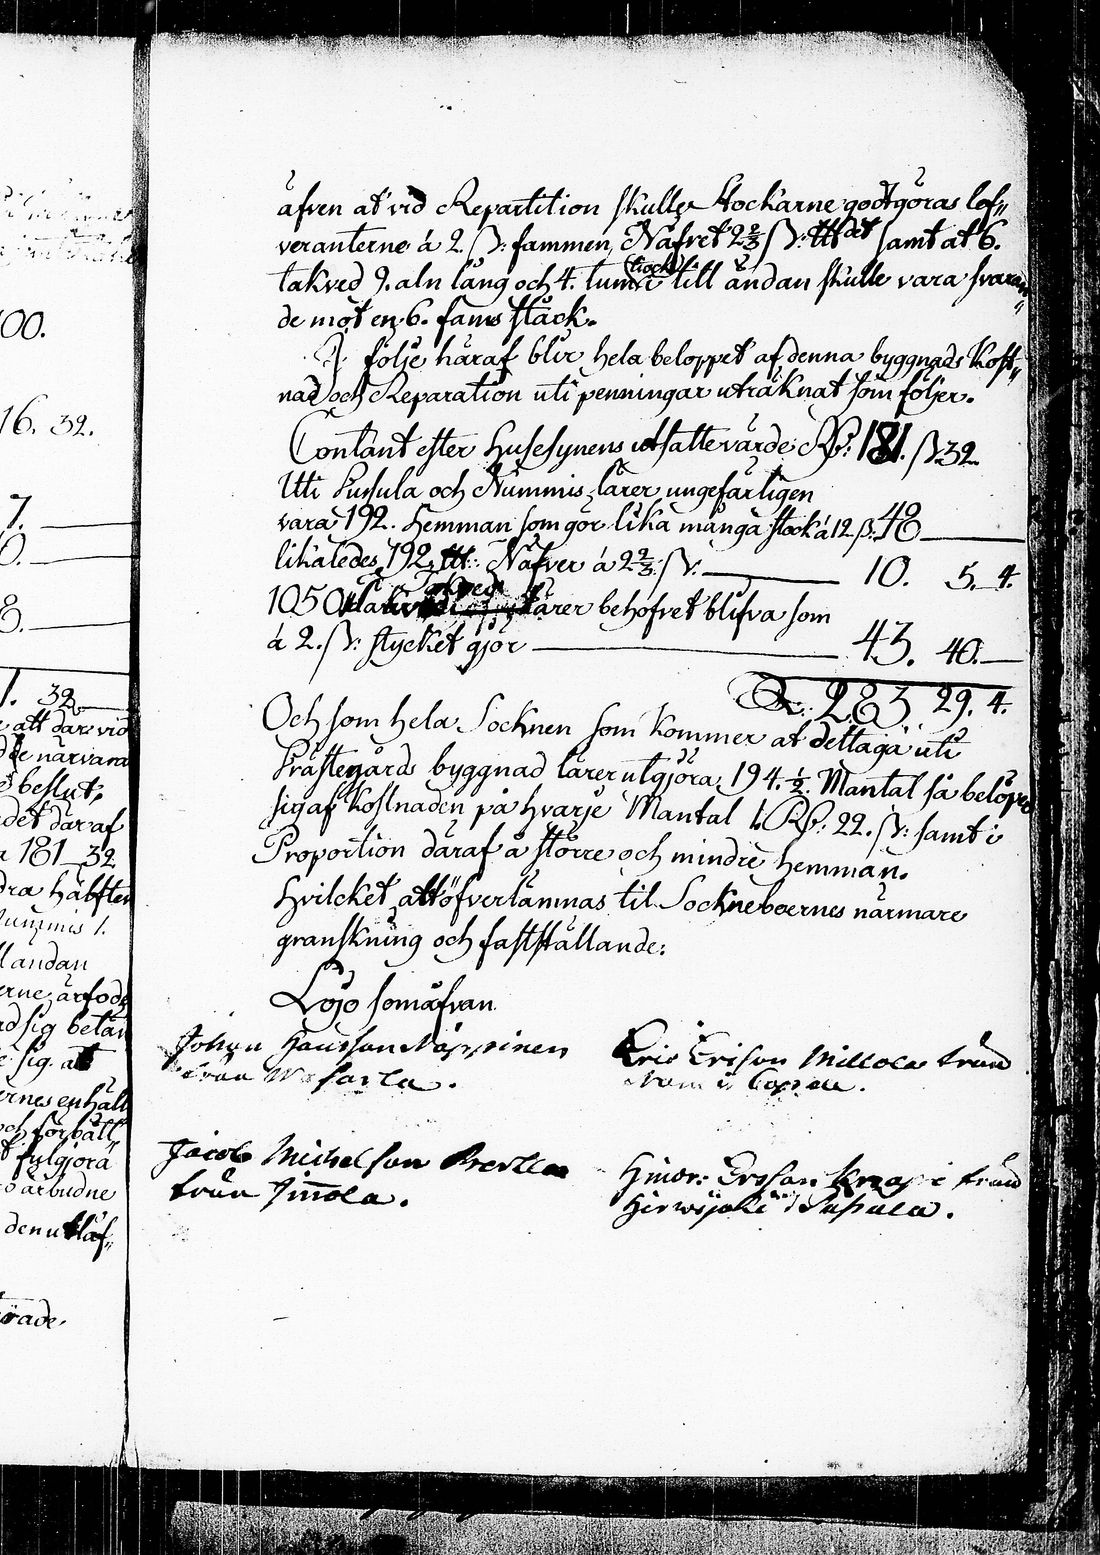 00.
16. 32.
7.
0.
8.
1. 32
att där vid
de närvara
beslut,
det däraf
181_32
dra häbften
Nummis 1.
landan
erne ärfode
rd sig betän
sig at
ernes enhäll
och förbätt
fulgjöra
ärbudne
den utläf„
äfven at vid Repartition skulle stockarne godtgöras lef„
veranterne á 2. ß: fammen, Näfret 2 2/3 ß: ttt det samt at 6.
takved 9. aln lång och 4. tum (tiock) till ändan skulle vara svaran„
de mot en 6. fams stäck.
I följe häraf blir hela beloppet af denna byggnads kost„
nad och Reparation uti penningar uträknat som följer.
Contant efter Husesynens utsatte värde Rß: 181. ß 32.
Uti Pusula och Nummis lärer ungefärligen
vara 192. Hemman som gör lika många stock á 12 ß. 48
likaledes 192 ttt: Näfver á 2 2/3: ß: 10. 5. 4.
1050 Takved lärer behöfvet blifva som
á 2. ß: stycket gjör 43. 40.
Rß: 283. 29. 4.
Och som hela Socknen som kommer at dettaga uti
Prästegårds byggnad lärer utgjöra 194. 1/2. Mantal så belöper
sig af kostnaden på hvarje Mantal 1. Rß: 22. ß: samt i
Proportion däraf å större och mindre hemman.
Hvilcket att öfverlämnas til Sockneboernes närmare
granskning och fastställande:
Lojo som äfvan
Johan Hansson Näppinen
från
Eric Ersson Millola från
Jacob Michelson Bertla
från Immola.
Hindr: Ersson Knapi från
Hirwijoki i Pusula.